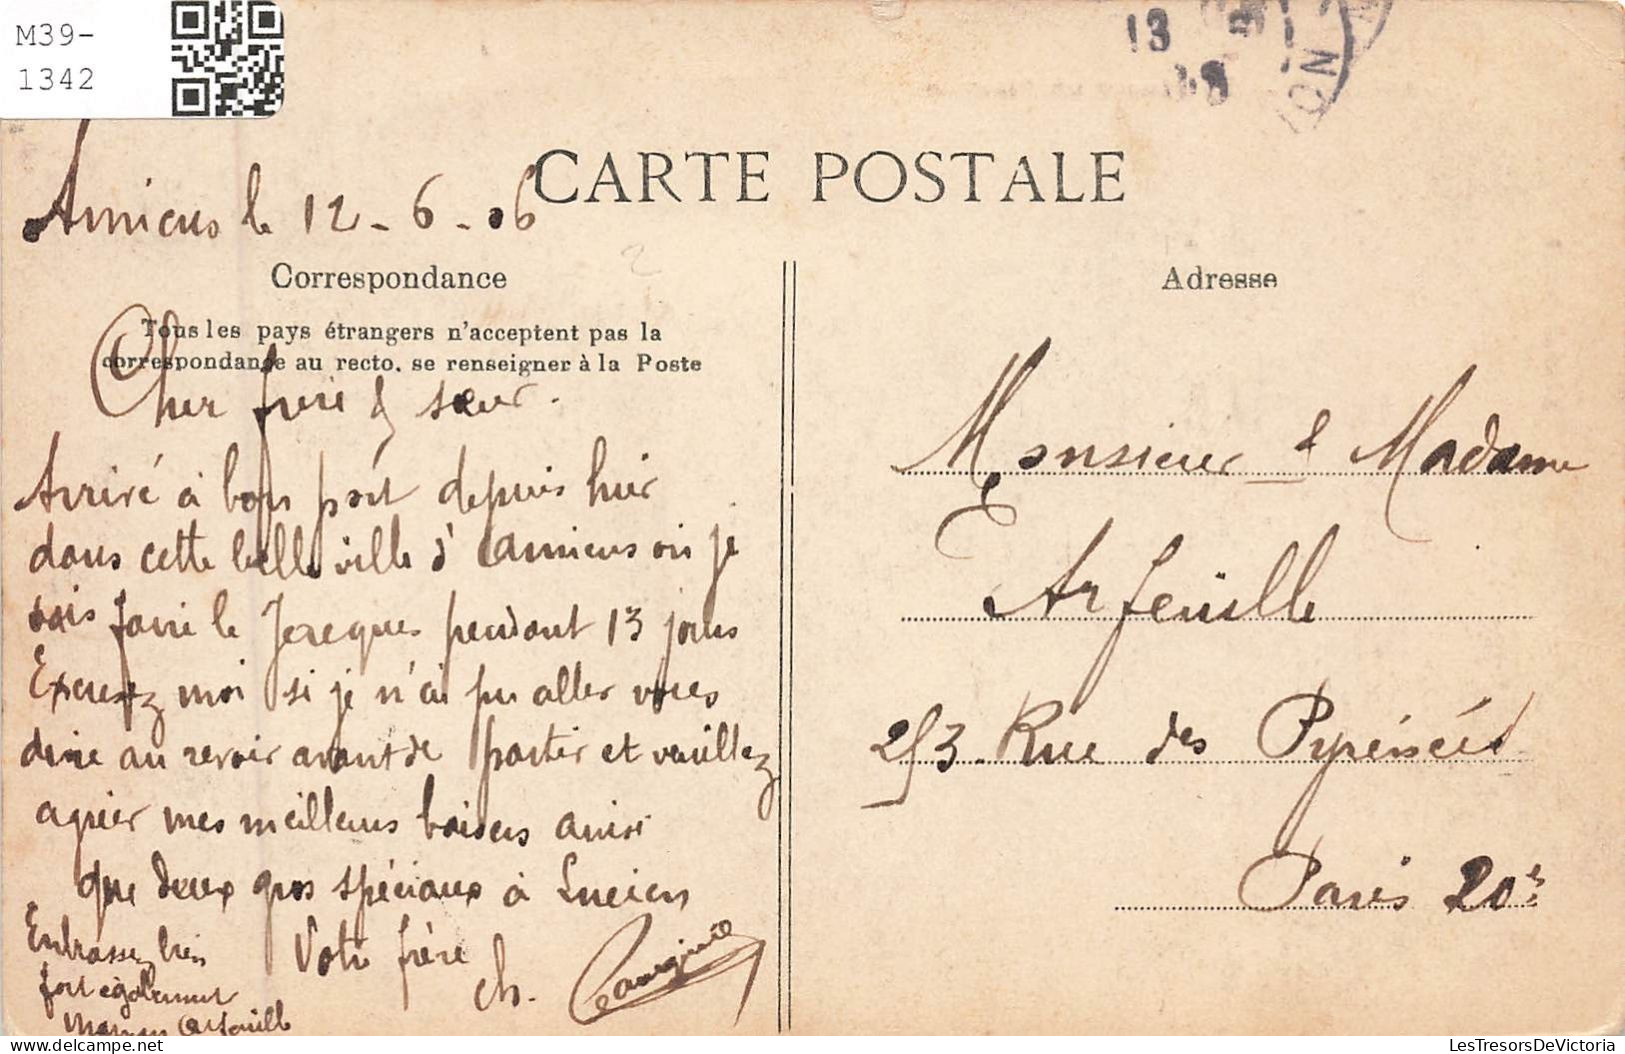 M39-
1342
13
ON
Amiens le 12-6-06
CARTE POSTALE
Correspondance
Tous les pays étrangers n'acceptent pas la
correspondance au recto, se renseigner à la Poste
Cher frère & sœur.
Arrivé à bon port depuis hier
dans cette belle ville d'Amiens où je
vais faire le pendant 13 jours
Excusez moi si je n'ai pu aller vous
dire au revoir avant de partir et veuillez
agréer mes meilleurs baisers ainsi
que deux gros spéciaux à Lucien
Embrassez bien
fort également
Maman Arfeuille
Votre frère
Ch.
Adresse
Monsieur & Madame
Arfeuille
253 Rue des Pyrénées
Paris 20e
LesTresorsDeVictoria.com